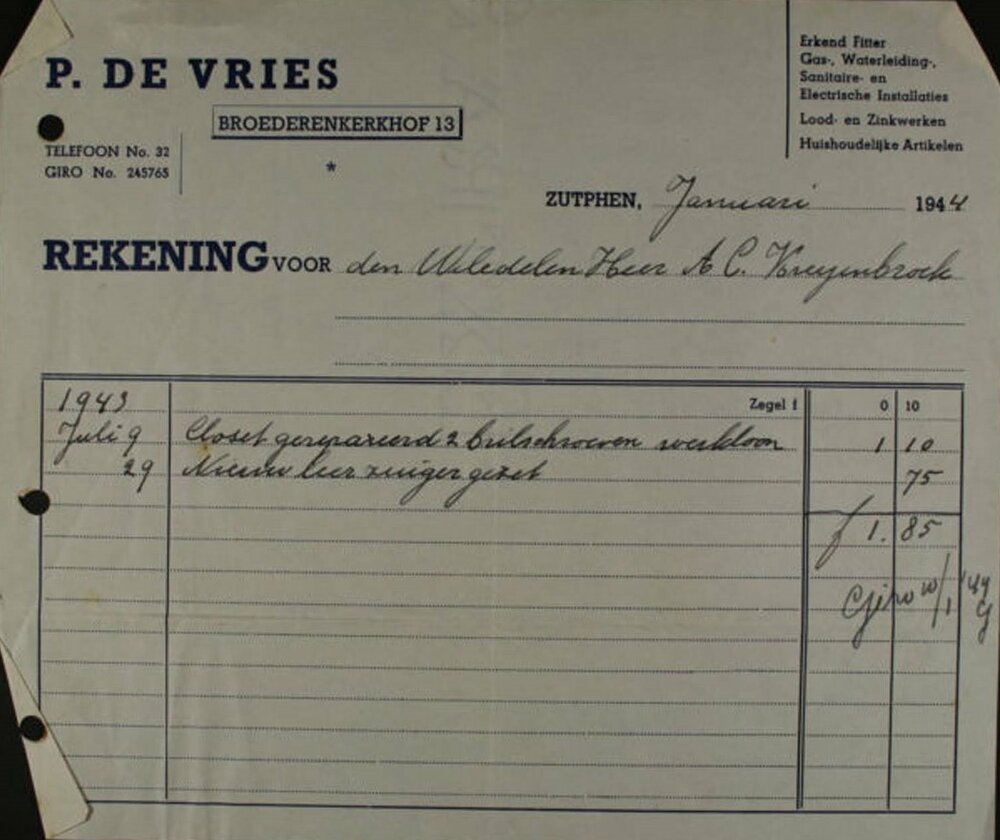 P. DE VRIES
BROEDERENKERKHOF 13
TELEFOON No. 32
GIRO No. 245765
*
Erkend Fitter
Gas-, Waterleiding-,
Sanitaire- en
Electrische Installaties
Lood- en Zinkwerken
Huishoudelijke Artikelen
ZUTPHEN, Januari 1944
REKENING VOOR den Weledelen Heer A C. Kreyenbroek
1943 Zegel f 0 10
Juli 9 Closet gerepareerd 2 brilschroeven werkloon 1 10
29 Nieuw leer zuiger gezet 75
f 1. 85
Giro 10/1 '44